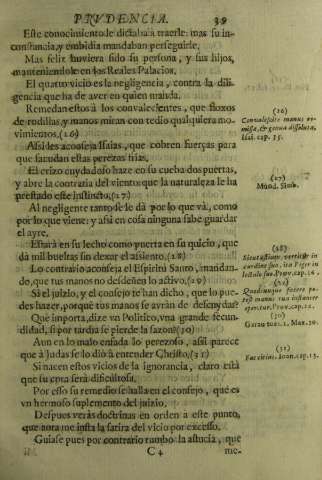 PRUDENCIA. 39
Este conocimiento le dictaba à traerle: mas su in-
constancia, y embidia mandaban perseguirle.
Mas feliz huviera sido su persona, y sus hijos,
manteniendole en los Reales Palacios.
El quarto vicio es la negligencia, contra la dili-
gencia que ha de aver en quien manda.
Remedan estos à los convalecientes, que floxos
de rodillas, y manos miran con tedio qualquiera mo-
vimientos. (26)
Assi les aconseja Isaias, que cobren fuerças para
que sacudan estas perezas frias.
El erizo cuydadoso haze en su cueba dos puertas,
y abre la contraria del viento: que la naturaleza le ha
prestado este instinto. (27)
Al negligente tanto se le dà por lo que và, como
por lo que viene: y assi en cosa ninguna sabe guardar
el ayre.
Estarà en su lecho como puerta en su quicio, que
dà mil bueltas sin dexar el assiento. (28)
Lo contrario aconseja el Espiritu Santo, mandan-
do, que tus manos no desdeñen lo activo. (29)
Si el juizio, y el consejo te han dicho, que lo pue-
des hazer, porquè tus manos se avràn de descuydar?
Què importa, dize vn Politico, vna grande fecun-
didad, si por tardia se pierde la sazon? (30)
Aun en lo malo enfada lo perezoso, assi parece
que à Judas se lo diò à entender Christo. (31)
Si nacen estos vicios de la ignorancia, claro està
que su cura serà dificultosa.
Por esso su remedio se halla en el consejo, que es
vn hermoso suplemento del juizio.
Despues veràs doctrinas en orden à este punto,
que aora me insta la satira del vicio por excesso.
Guiase pues por contrario rumbo la astucia, que
C 4 me-
(26)
Convalescite manus re-
missæ, & genua dissoluta,
Isai. cap. 35.
(27)
Mund. Simb.
(28)
Sicut ostium vertitur in
cardine suo: ita Piger in
lectulo suo. Prov. cap. 26.
(29)
Quodcumque facere po-
test manus tua instanter
(30)
(31)
Fac citius. Ioan. cap. 13.